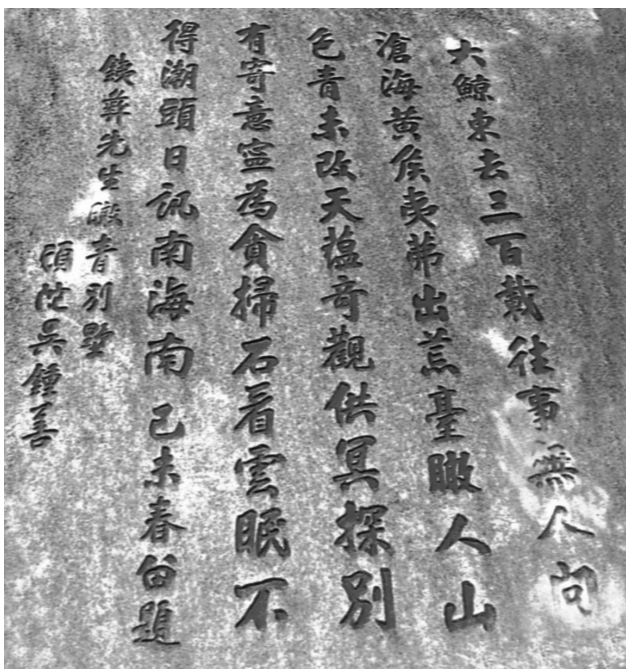 大鯨東去三百載往事無人問
滄海黃侯夷茀出荒臺瞰人山
色青未改天蘊奇觀供冥探別
有寄意寧為貪掃石看雲眠不
得潮頭日訊南海南 己未春題
銕彝先生瞰青別墅
頑陀吳鍾善